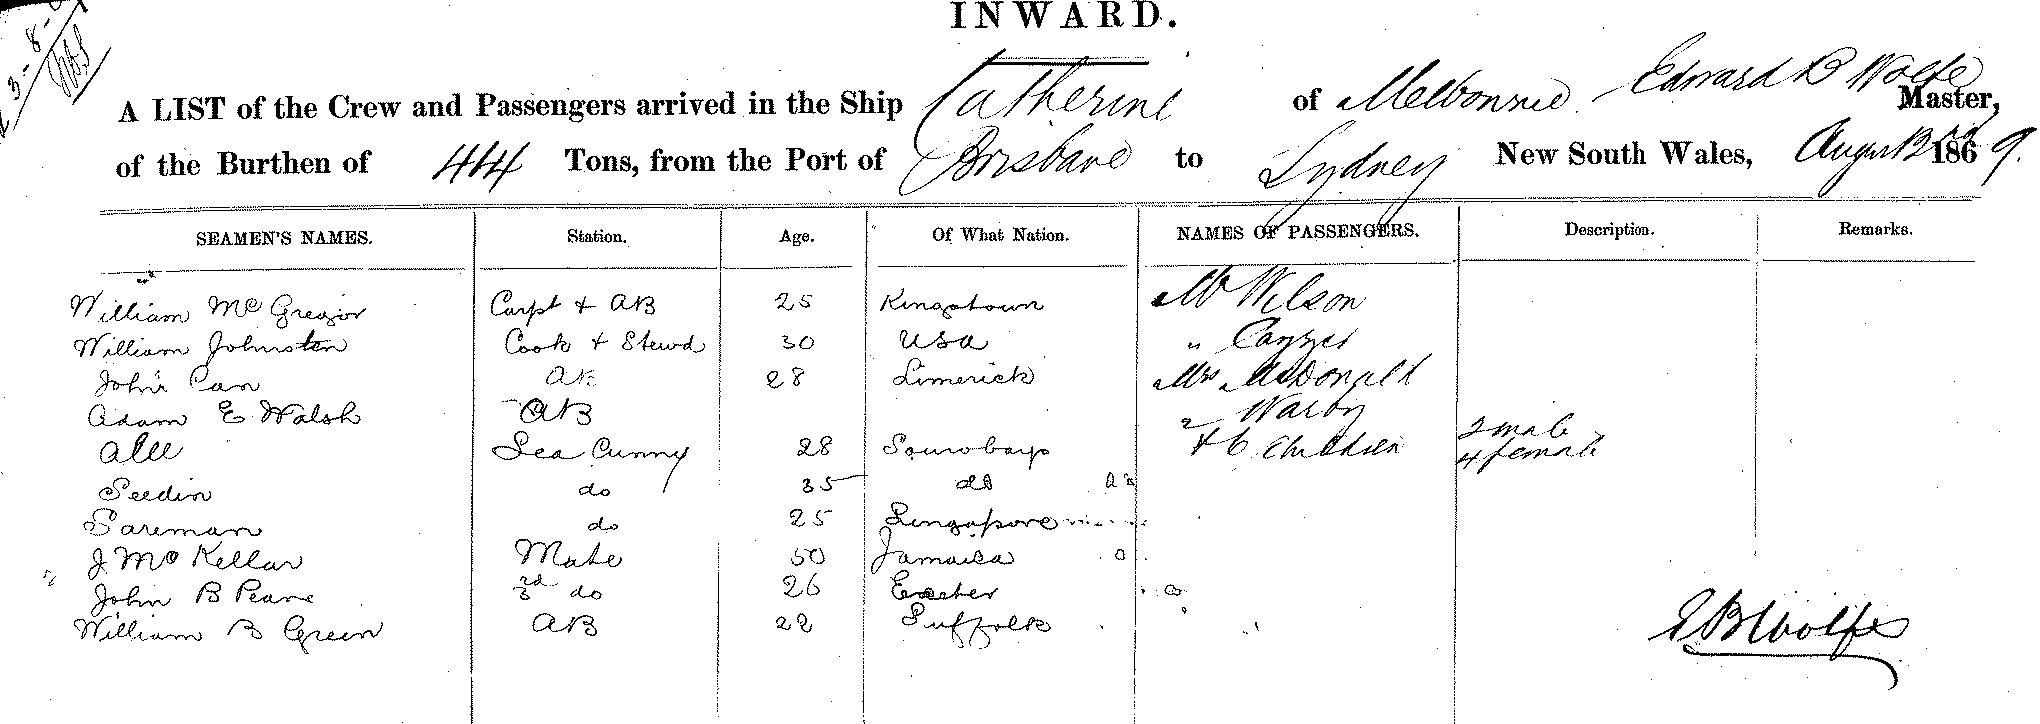 INWARD.
3-8-
A LIST of the Crew and Passengers arrived in the Ship Catherine of Melbourne Edward B Wolfe Master,
of the Burthen of 44 Tons, from the Port of Brisbane to Sydney New South Wales, August 1869.
SEAMEN'S NAMES. Station. Age. Of What Nation. NAMES OF PASSENGERS. Description. Remarks.
William McGregor Carpt + AB 25 Kingstown Mr Wilson
William Johnston Cook + Stewd 30 USA "
John Carr AB 28 Limerick Mrs McDonald
Adam E Walsh AB " Warby
Alee Sea Cunny 28 Sourabaya + 6 Children 2 male 4 female
Seedin do 35 do
Sareman do 25 Singapore
J McKellar Mate 50 Jamaica
John B Peane do 26 Exeter
William B Green AB 22 Suffolk
E B Wolfe